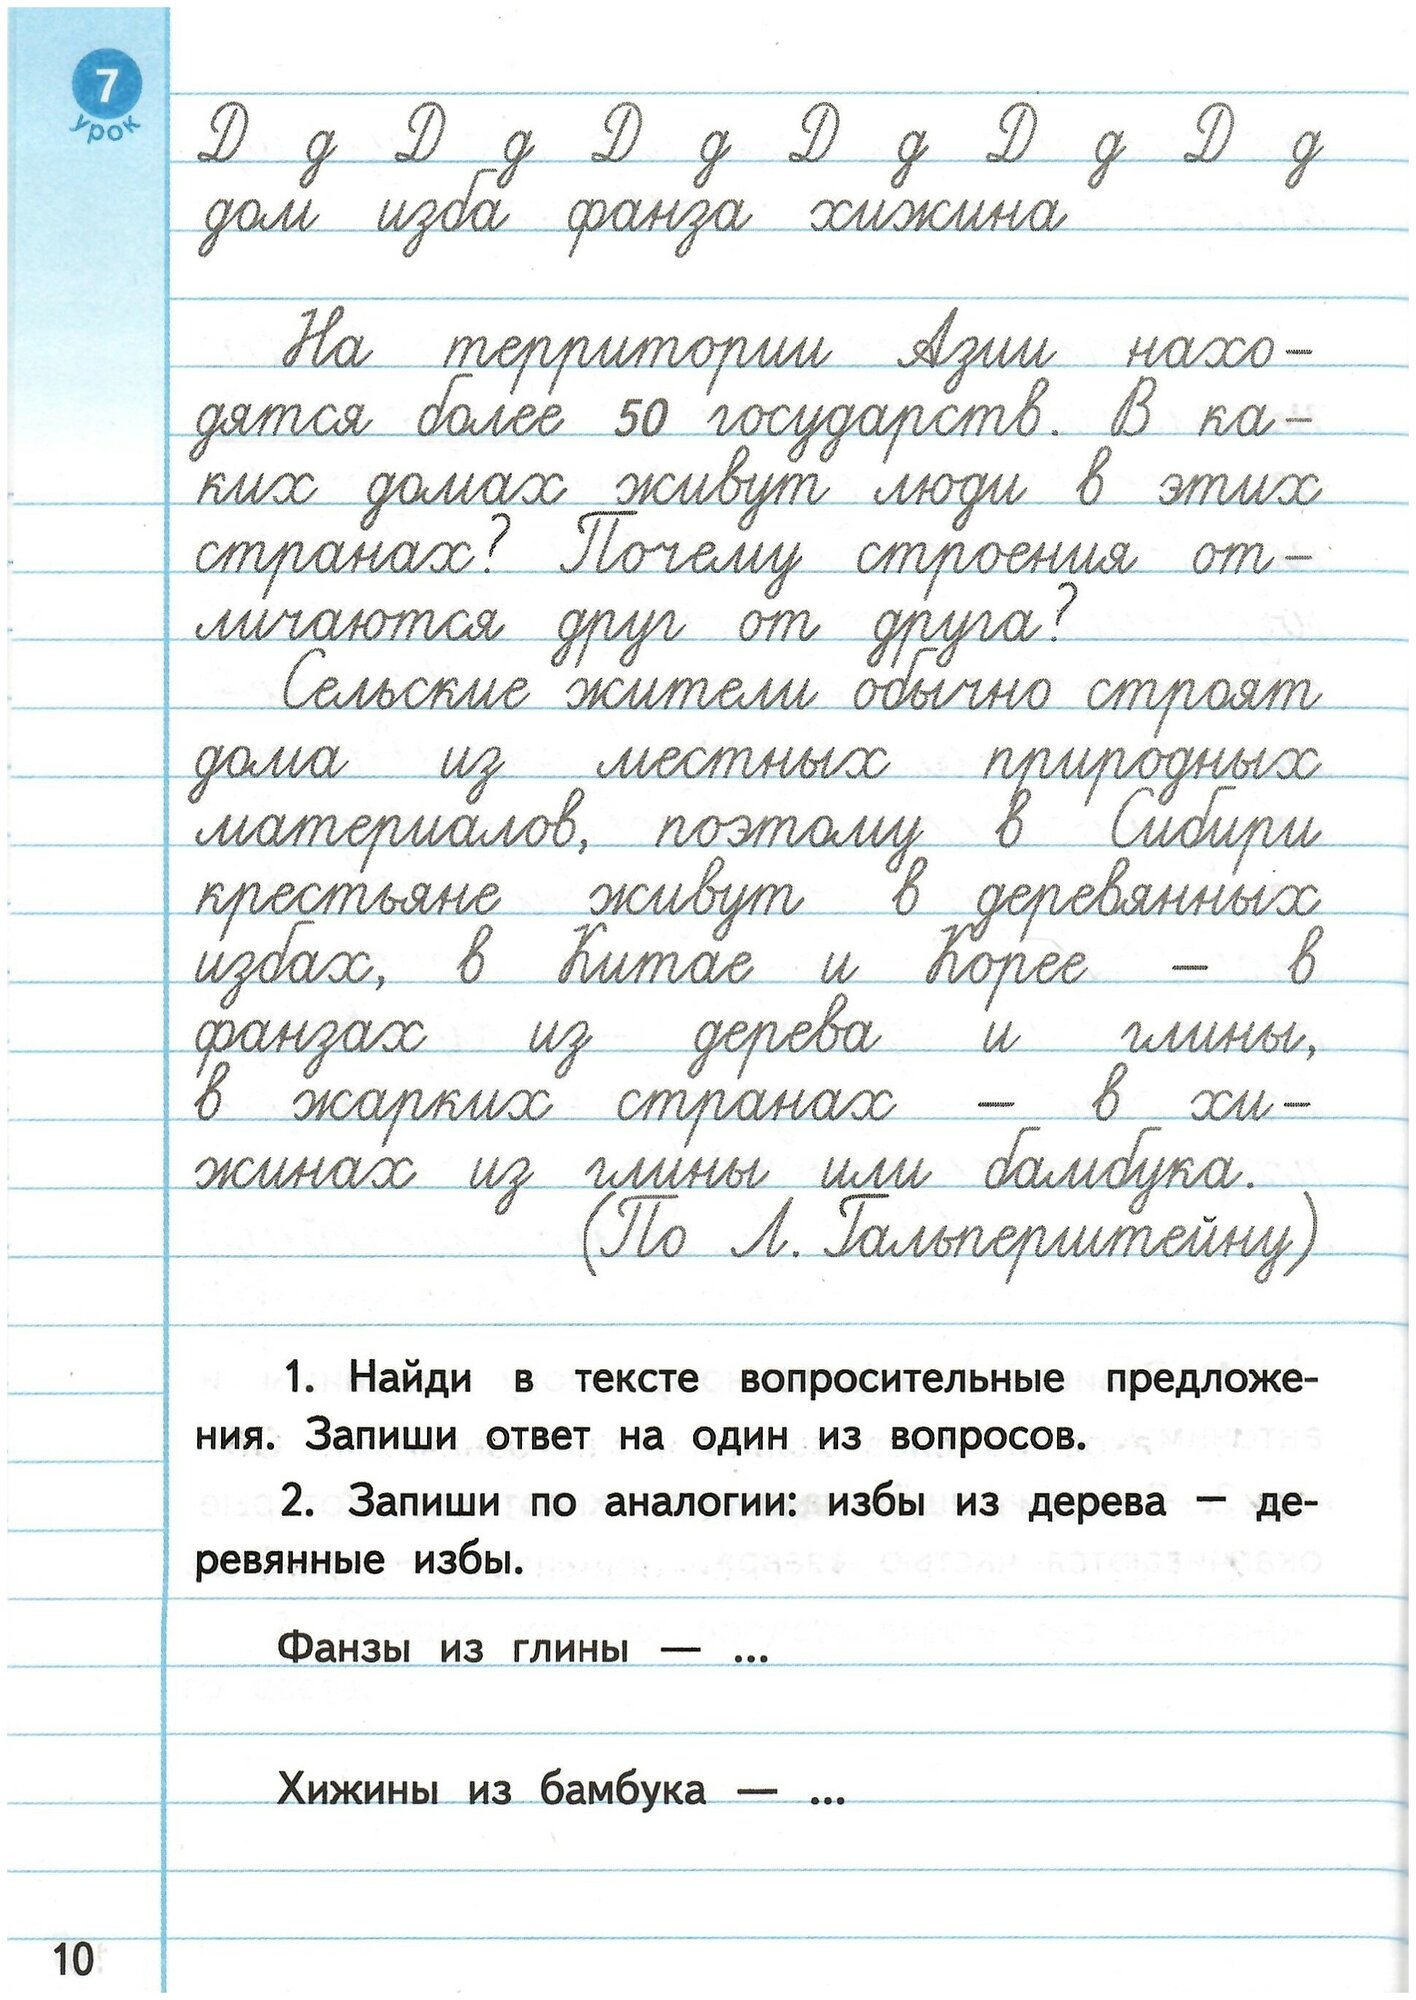 7
урок
Д д Д д Д д Д д Д д Д д
дом изба фанза хижина
На территории Азии нахо-
дятся более 50 государств. В ка-
ких домах живут люди в этих
странах? Почему строения от-
личаются друг от друга?
Сельские жители обычно строят
дома из местных природных
материалов, поэтому в Сибири
крестьяне живут в деревянных
избах, в Китае и Корее – в
фанзах из дерева и глины,
в жарких странах – в хи-
жинах из глины или бамбука.
(По Л. Гальперштейну)
1. Найди в тексте вопросительные предложе-
ния. Запиши ответ на один из вопросов.
2. Запиши по аналогии: избы из дерева — де-
ревянные избы.
Фанзы из глины — ...
Хижины из бамбука — ...
10